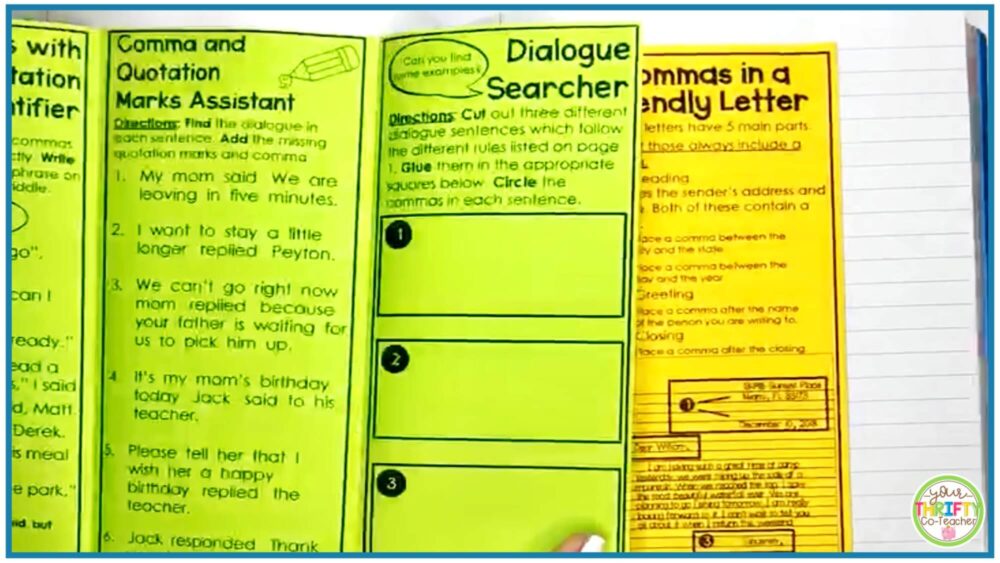 s with
tation
ntifier
commas
Write
phrase on
iddle.
go".
can I
ready."
ead a
s," I said
d, Matt.
Derek.
is meal
e park,"
aid, but
Comma and
Quotation
Marks Assistant
Directions: Find the dialogue in
each sentence. Add the missing
quotation marks and comma
1. My mom said We are
leaving in five minutes.
2. I want to stay a little
longer replied Peyton.
3. We can't go right now
mom replied because
your father is waiting for
us to pick him up.
4. It's my mom's birthday
today Jack said to his
teacher.
5. Please tell her that I
wish her a happy
birthday replied the
teacher.
6. Jack responded Thank
Can you find
some examples?
Dialogue
Searcher
Directions: Cut out three different
dialogue sentences which follow
the different rules listed on page
1. Glue them in the appropriate
squares below. Circle the
commas in each sentence.
1
2
3
ommas in a
endly Letter
letters have 5 main parts.
those always include a
eading
es the sender's address and
Both of these contain a
lace a comma between the
ity and the state
lace a comma between the
day and the year
Greeting
Place a comma after the name
of the person you are writing to.
Closing
Place a comma after the closing
1
December 10, 2018
Dear William,
3
your
THRIFTY
Co-Teacher